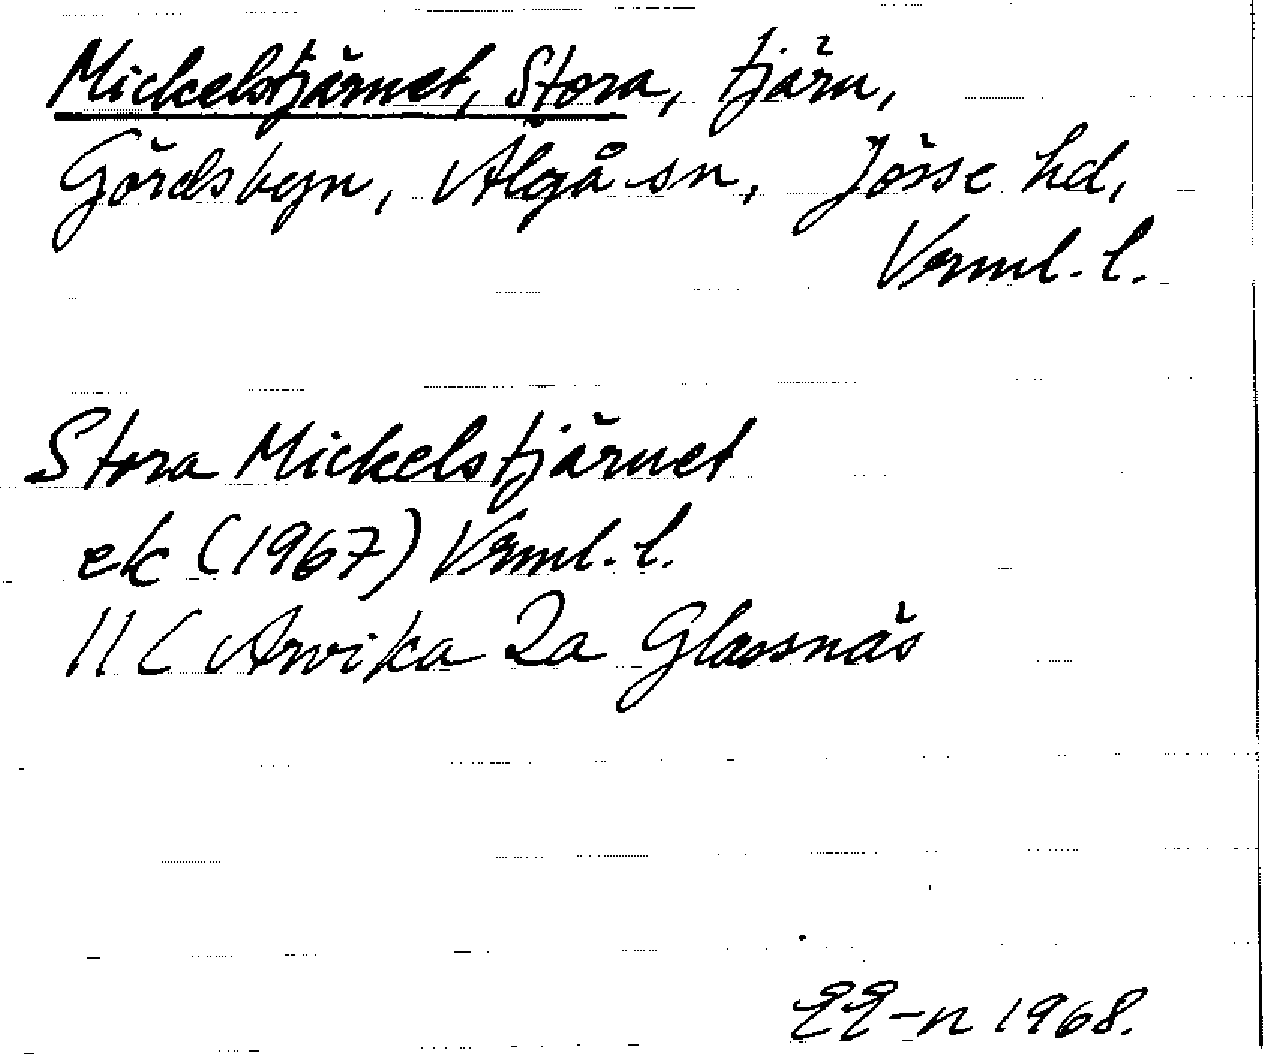 Mickelstjärnet, Stora, tjärn,
Gördsbyn, Älgå sn, Jösse hd,
Vrml. l.
Stora Mickelstjärnet
ek (1967) Vrml. l.
11C Arvika 2a Glassnäs
EE-n 1968.